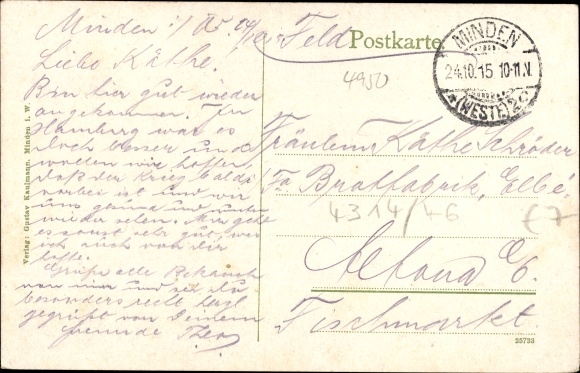 Minden i/W. 24/10.
Liebe Käthe.
Bin hier gut wieder
angekommen. In
Hamburg war es
doch besser und
wollen wir hoffen
daß der Krieg bald
vorbei ist und wir
uns gesund und munter
wieder sehen. Mir geht
es sonst sehr gut, was
ich auch von dir
hoffe.
Grüße alle Bekannte
von mir und sei du
besonders recht herzl
gegrüßt von Deinem
Freunde Theo
Feld Postkarte
4950
MINDEN
24.10.15 10-11.N.
*(WESTF)2c*
Fräulein Käthe Schröder
Fa Bratfabrik, Elbe
4314/46
€7
Altona a/E.
Fischmarkt.
35733
Verlag: Gustav Kaulmann, Minden i. W.